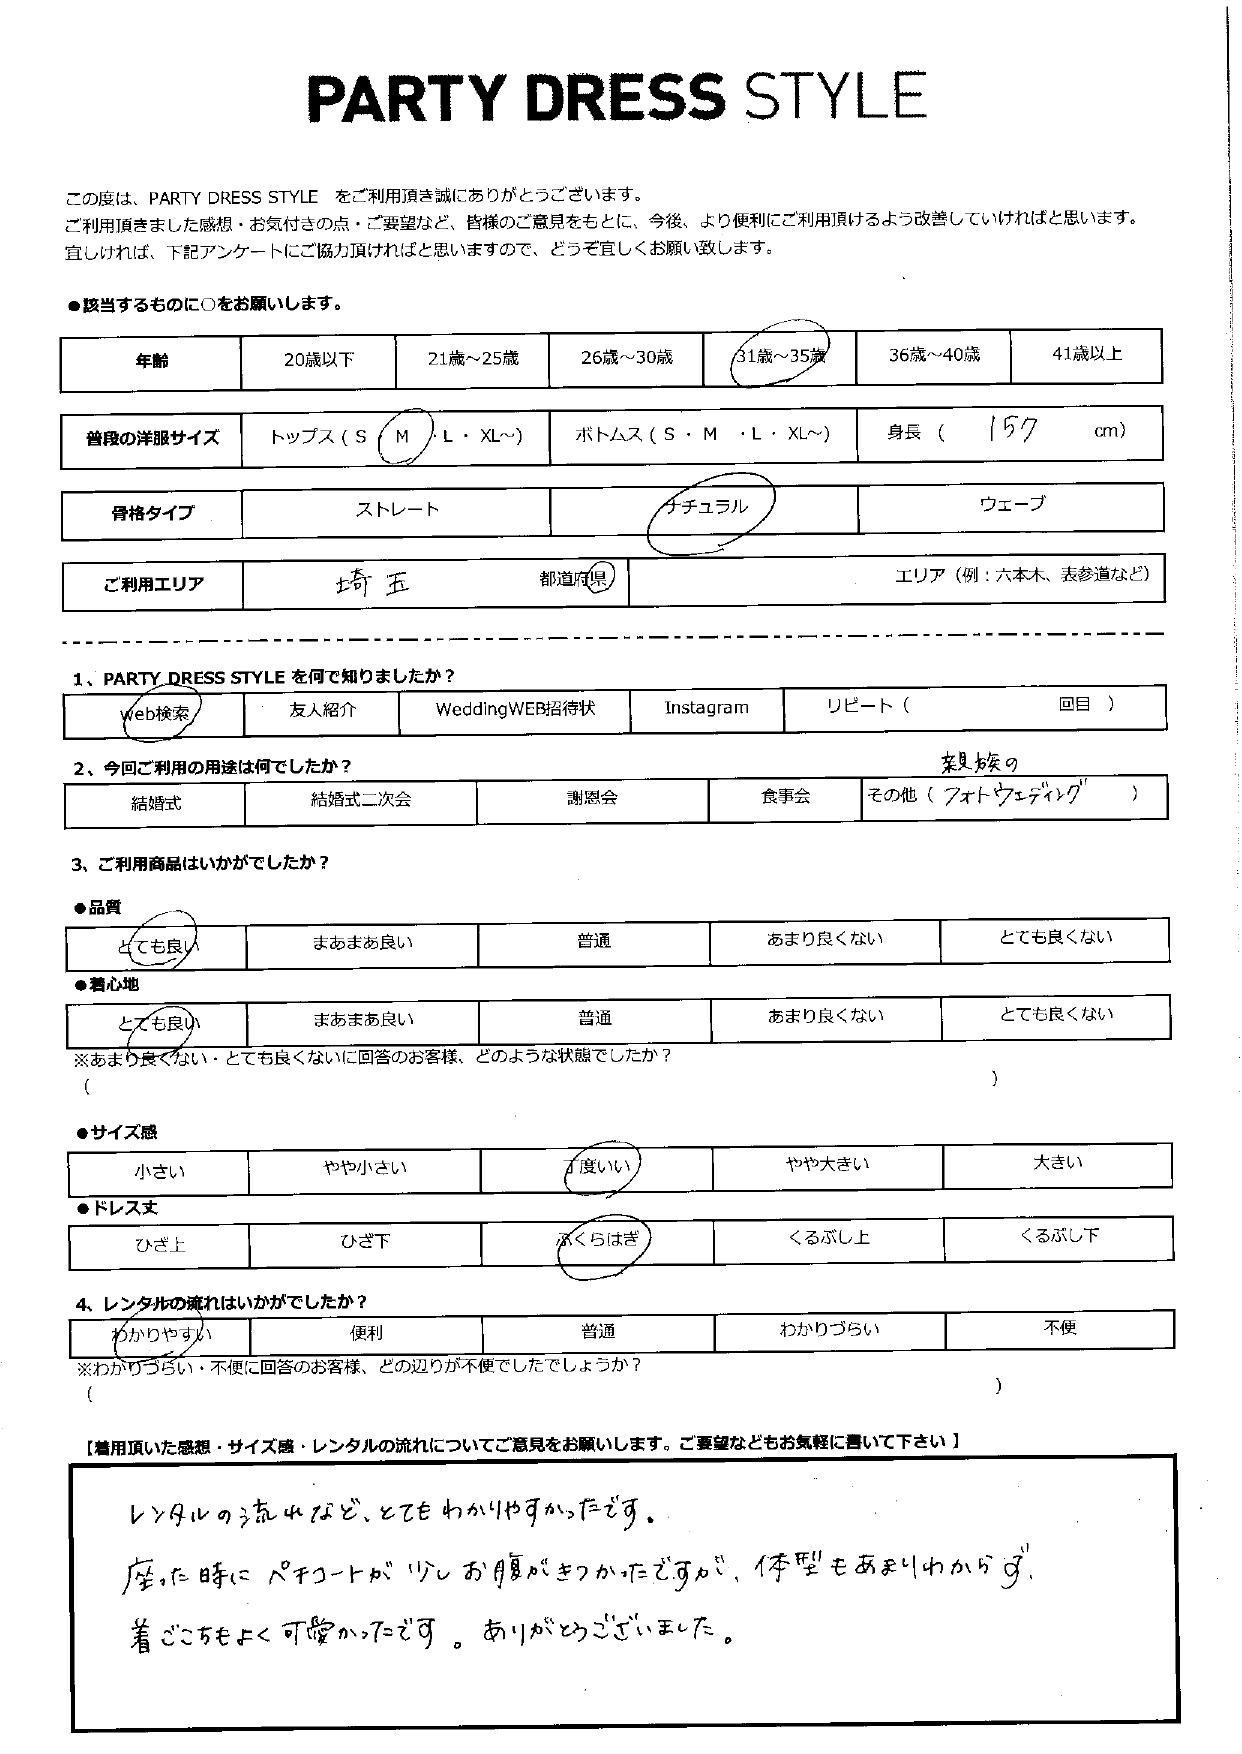 PARTY DRESS STYLE
この度は、PARTY DRESS STYLE をご利用頂き誠にありがとうございます。
ご利用頂きました感想・お気付きの点・ご要望など、皆様のご意見をもとに、今後、より便利にご利用頂けるよう改善していければと思います。
宜しければ、下記アンケートにご協力頂ければと思いますので、どうぞ宜しくお願い致します。
●該当するものに○をお願いします。
年齢 20歳以下 21歳～25歳 26歳～30歳 31歳～35歳 36歳～40歳 41歳以上
普段の洋服サイズ トップス（ S ・ M ・ L ・ XL～） ボトムス（ S ・ M ・ L ・ XL～） 身長 （ 157 cm）
骨格タイプ ストレート ナチュラル ウェーブ
ご利用エリア 埼玉 都道府県 エリア（例：六本木、表参道など）
1、PARTY DRESS STYLE を何で知りましたか？
web検索 友人紹介 WeddingWEB招待状 Instagram リピート（ 回目 ）
2、今回ご利用の用途は何でしたか？
親族の
結婚式 結婚式二次会 謝恩会 食事会 その他（ フォトウェディング ）
3、ご利用商品はいかがでしたか？
●品質
とても良い まあまあ良い 普通 あまり良くない とても良くない
●着心地
とても良い まあまあ良い 普通 あまり良くない とても良くない
※あまり良くない・とても良くないに回答のお客様、どのような状態でしたか？
（ ）
●サイズ感
小さい やや小さい 丁度いい やや大きい 大きい
●ドレス丈
ひざ上 ひざ下 ふくらはぎ くるぶし上 くるぶし下
4、レンタルの流れはいかがでしたか？
わかりやすい 便利 普通 わかりづらい 不便
※わかりづらい・不便に回答のお客様、どの辺りが不便でしたでしょうか？
（ ）
【着用頂いた感想・サイズ感・レンタルの流れについてご意見をお願いします。ご要望などもお気軽に書いて下さい】
レンタルの流れなど、とてもわかりやすかったです。
座った時にペチコートが少しお腹がきつかったですが、体型もあまりわからず、
着ごこちもよく可愛かったです。ありがとうございました。